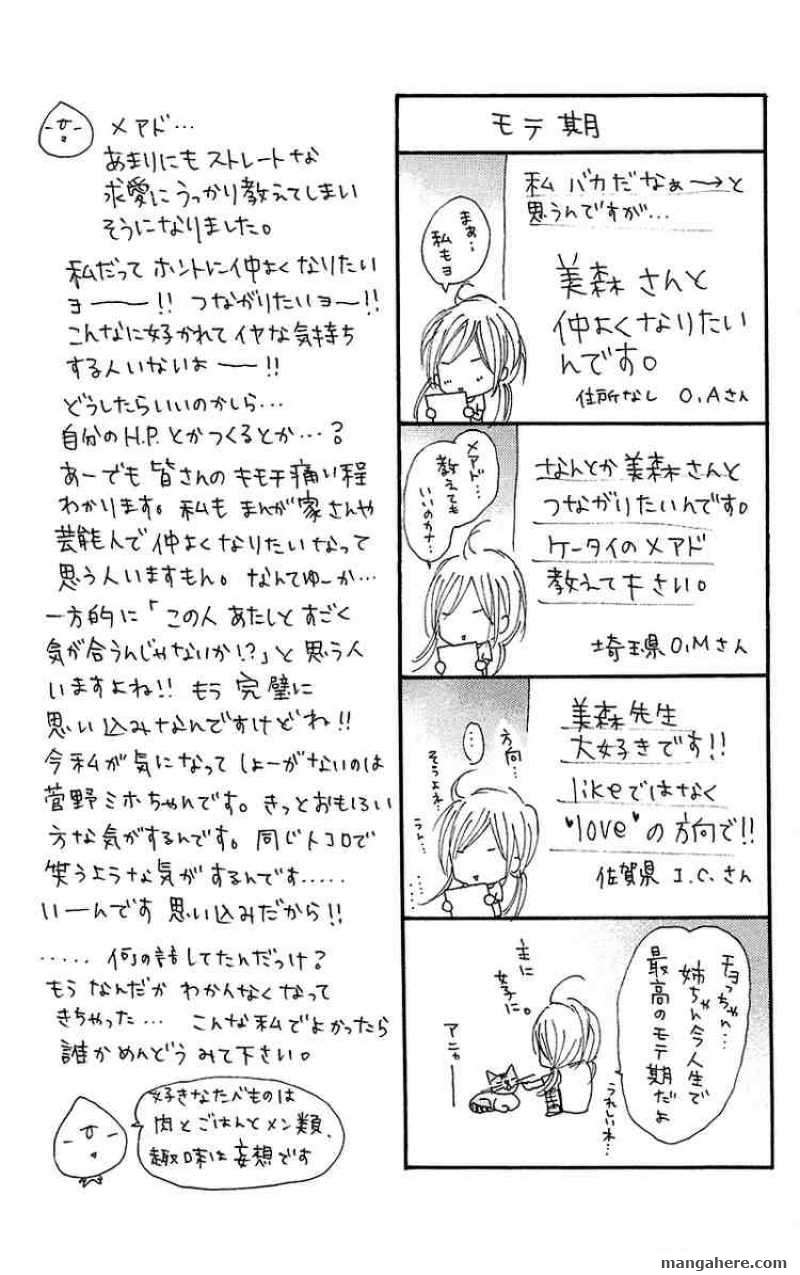 モテ期
私 バカだなぁーと
思うんですが…
美森さんと
仲よくなりたい
んです。
住所なし O,Aさん
まぁ…
私もョ
なんとか美森さんと
つながりたいんです。
ケータイのメアド
教えて下さい。
埼玉県O,Mさん
メアド…
教えても
いいのカナ…
美森先生
大好きです!!
likeではなく
"love"の方向で!!
佐賀県 I.C.さん
方向…
…
そうよね…
うん…
……
チョっちゃん…
姉ちゃん今人生で
最高のモテ期だよ
うれしいネ…
主に
女子に。
アニャー
メアド…
あまりにもストレートな
求愛にうっかり教えてしまい
そうになりました。
私だって ホントに仲よくなりたい
ョーー!! つながりたいョ〜!!
こんなに好かれてイヤな気持ち
する人いないよーー!!
どうしたらいいのかしら…
自分のH.P.とかつくるとか…?
あーでも 皆さんのキモチ痛い程
わかります。私も まんが家さんや
芸能人で仲よくなりたいなって
思う人いますもん。なんてゆーか…
一方的に「この人 あたしとすごく
気が合うんじゃないか!?」と思う人
いますよね!! もう 完璧に
思い込みなんですけどね!!
今私が気になって しょーがないのは
菅野ミホちゃんです。きっとおもしろい
方な気がするんです。同じトコロで
笑うような気がするんです.....
いーんです 思い込みだから!!
..... 何の話してたんだっけ?
もう なんだか わかんなくなって
きちゃった… こんな私でよかったら
誰かめんどうみて下さい。
好きなたべものは
肉とごはんとメン類、
趣味は妄想です
mangahere.com